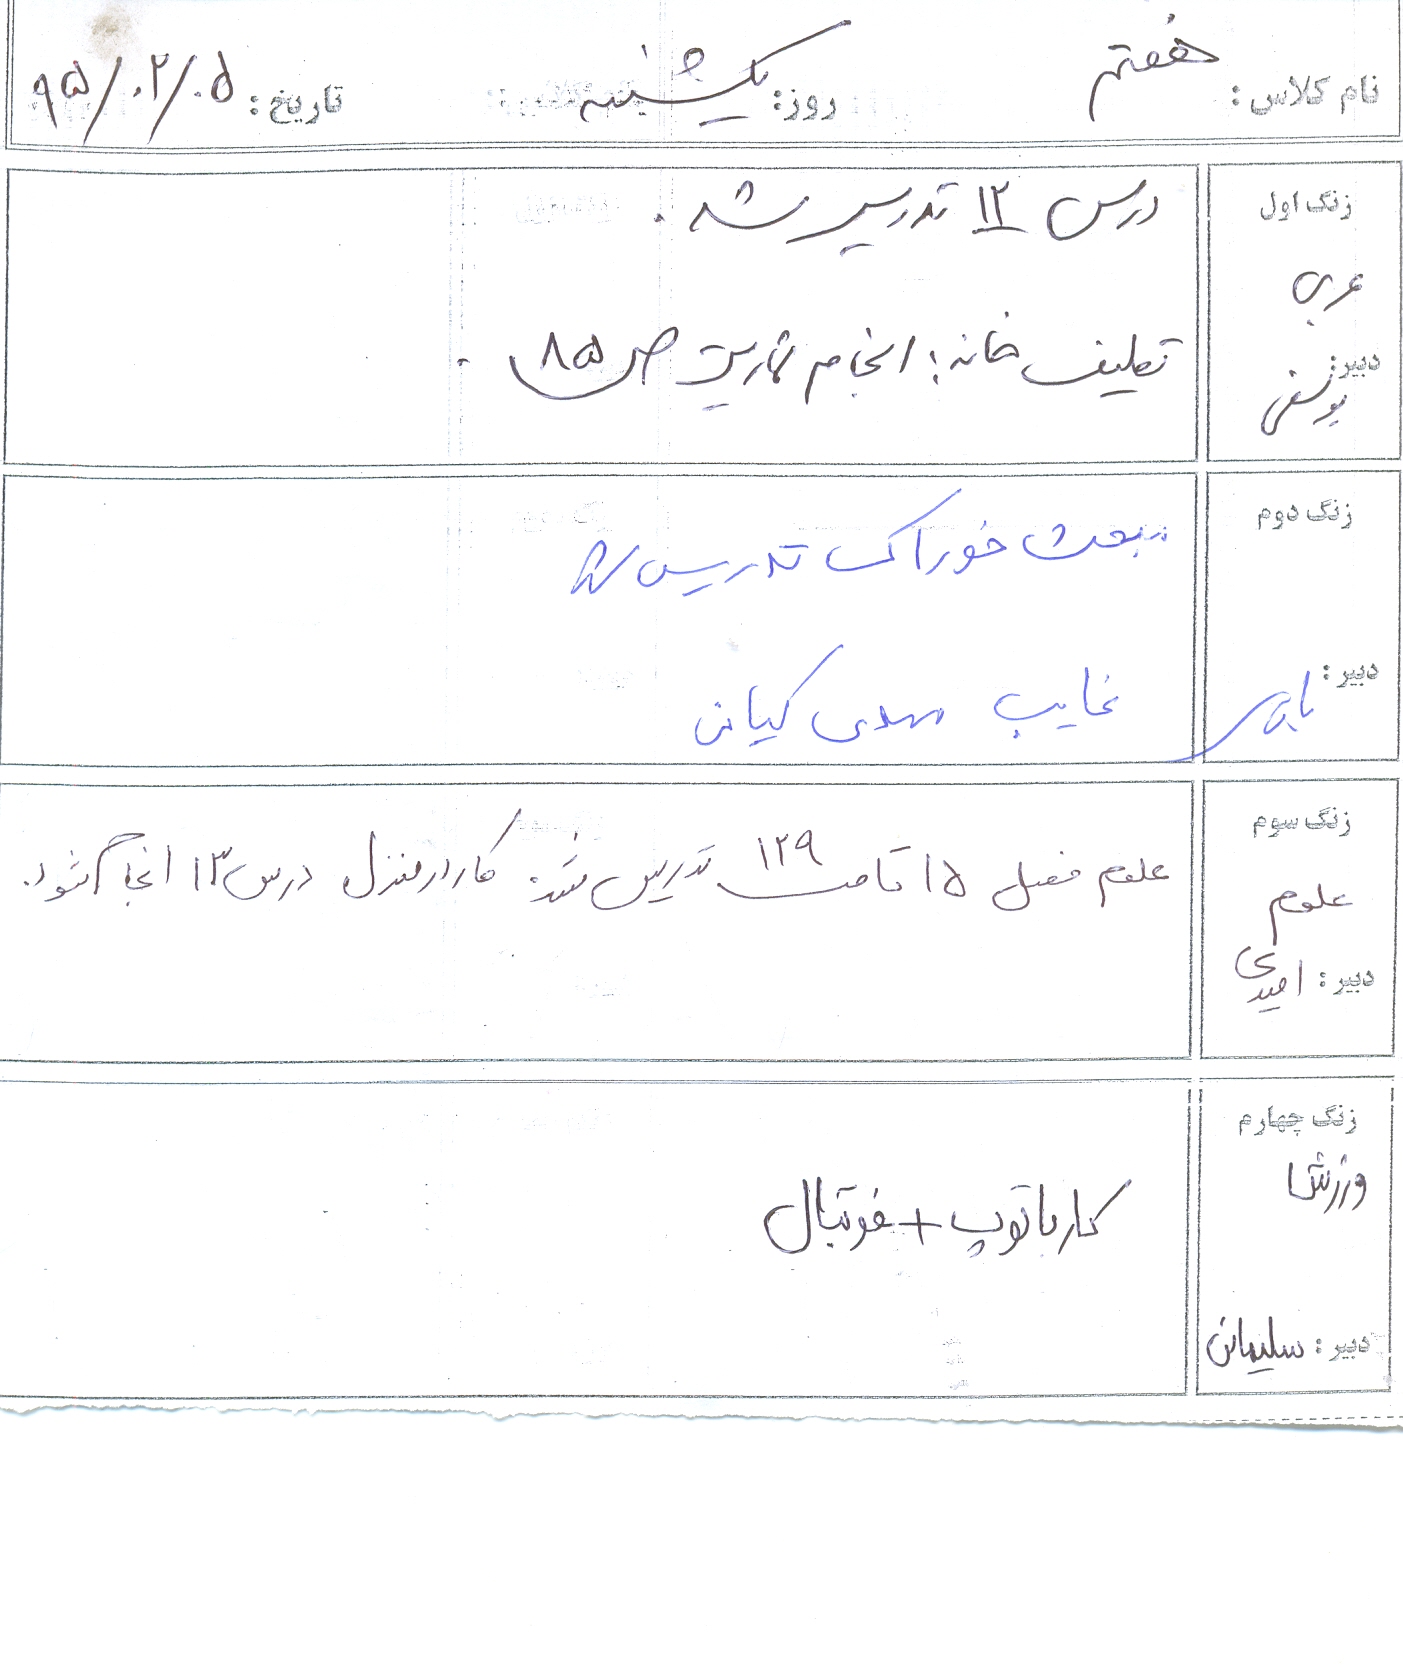 نام کلاس : هفتم روز: یکشنبه تاریخ : ۹۵/۰۲/۰۵
زنگ اول
عربی
دبیر: یوسفی
درس ۱۲ تدریس شد .
تکلیف خانه : انجام تمارین ص ۸۵ .
زنگ دوم
دبیر :
مبحث خوراک تدریس شد
غایب مهدی کیانی
زنگ سوم
علوم
دبیر : امیدی
علوم فصل ۱۵ تا ص ۱۲۹ تدریس شد. کار در منزل درس ۱۳ انجام شود.
زنگ چهارم
ورزش
دبیر : سلیمانی
کار با توپ + فوتبال